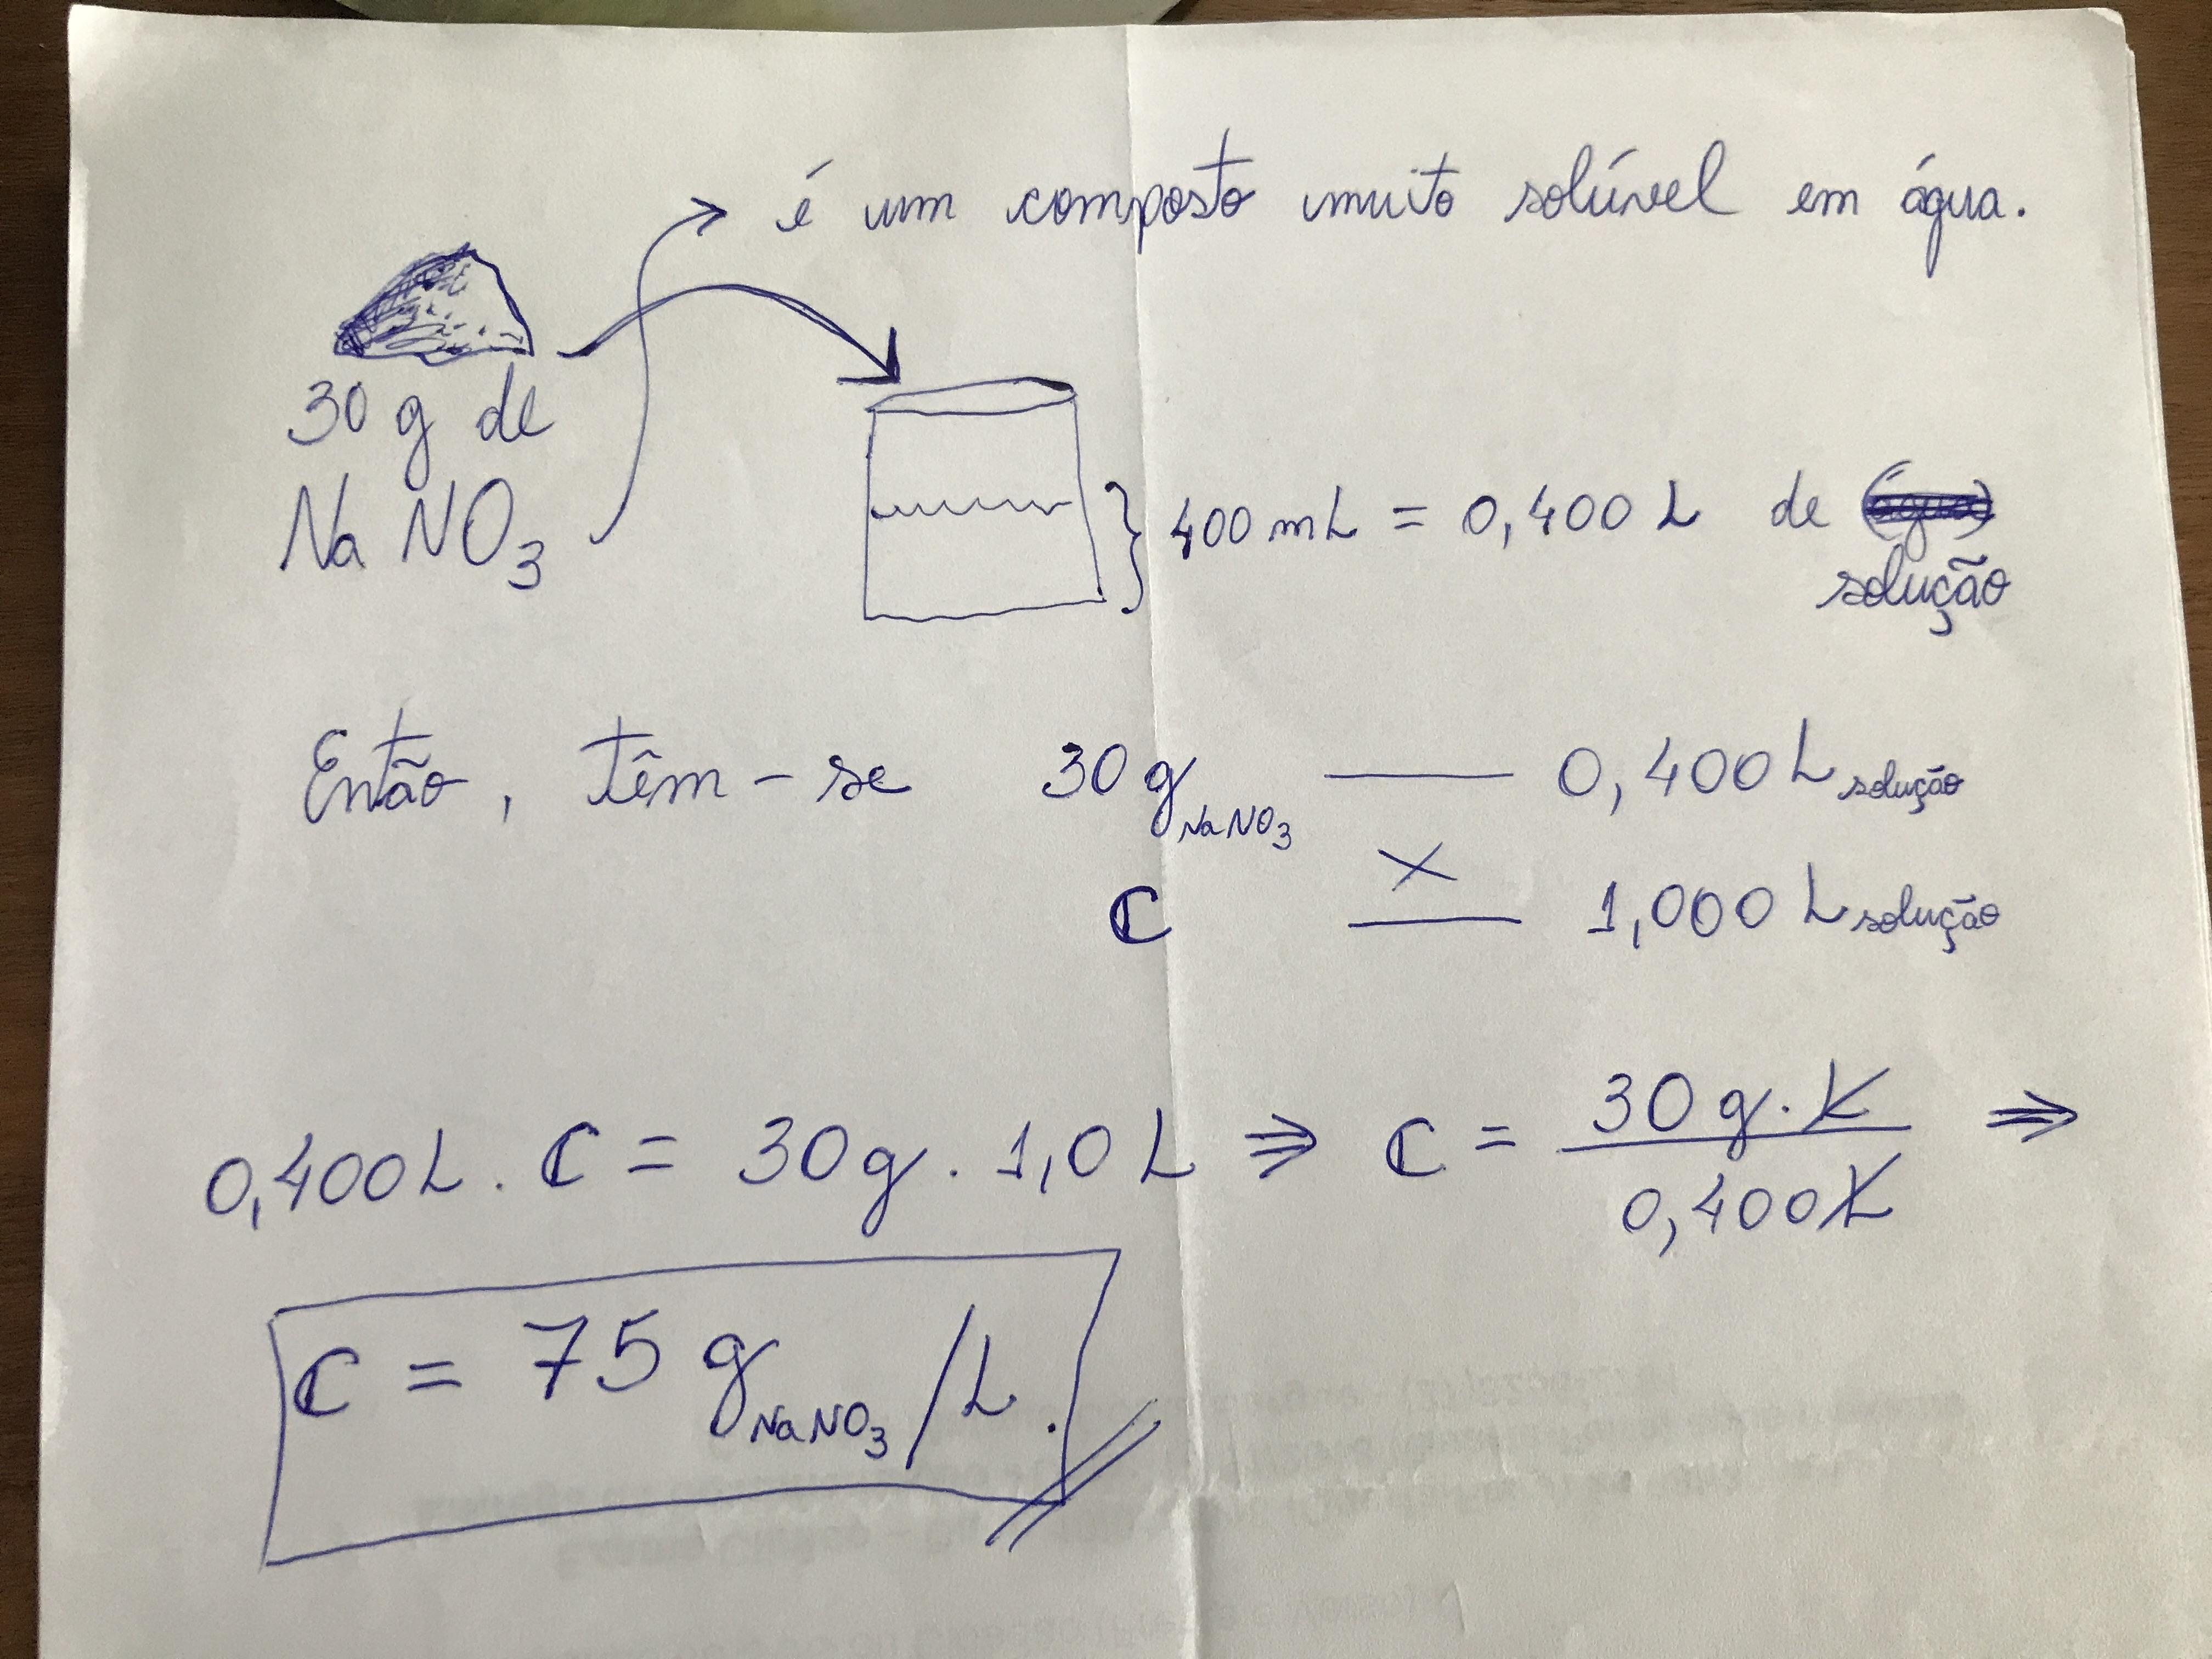 é um composto muito solúvel em água.
30 g de
NaNO3
400 mL = 0,400 L de
solução
Então, têm-se 30 g NaNO3 —— 0,400 L solução
X
C —— 1,000 L solução
0,400 L . C = 30 g . 1,0 L ⇒ C = 30 g . L ⇒
0,400 L
C = 75 g NaNO3 / L .